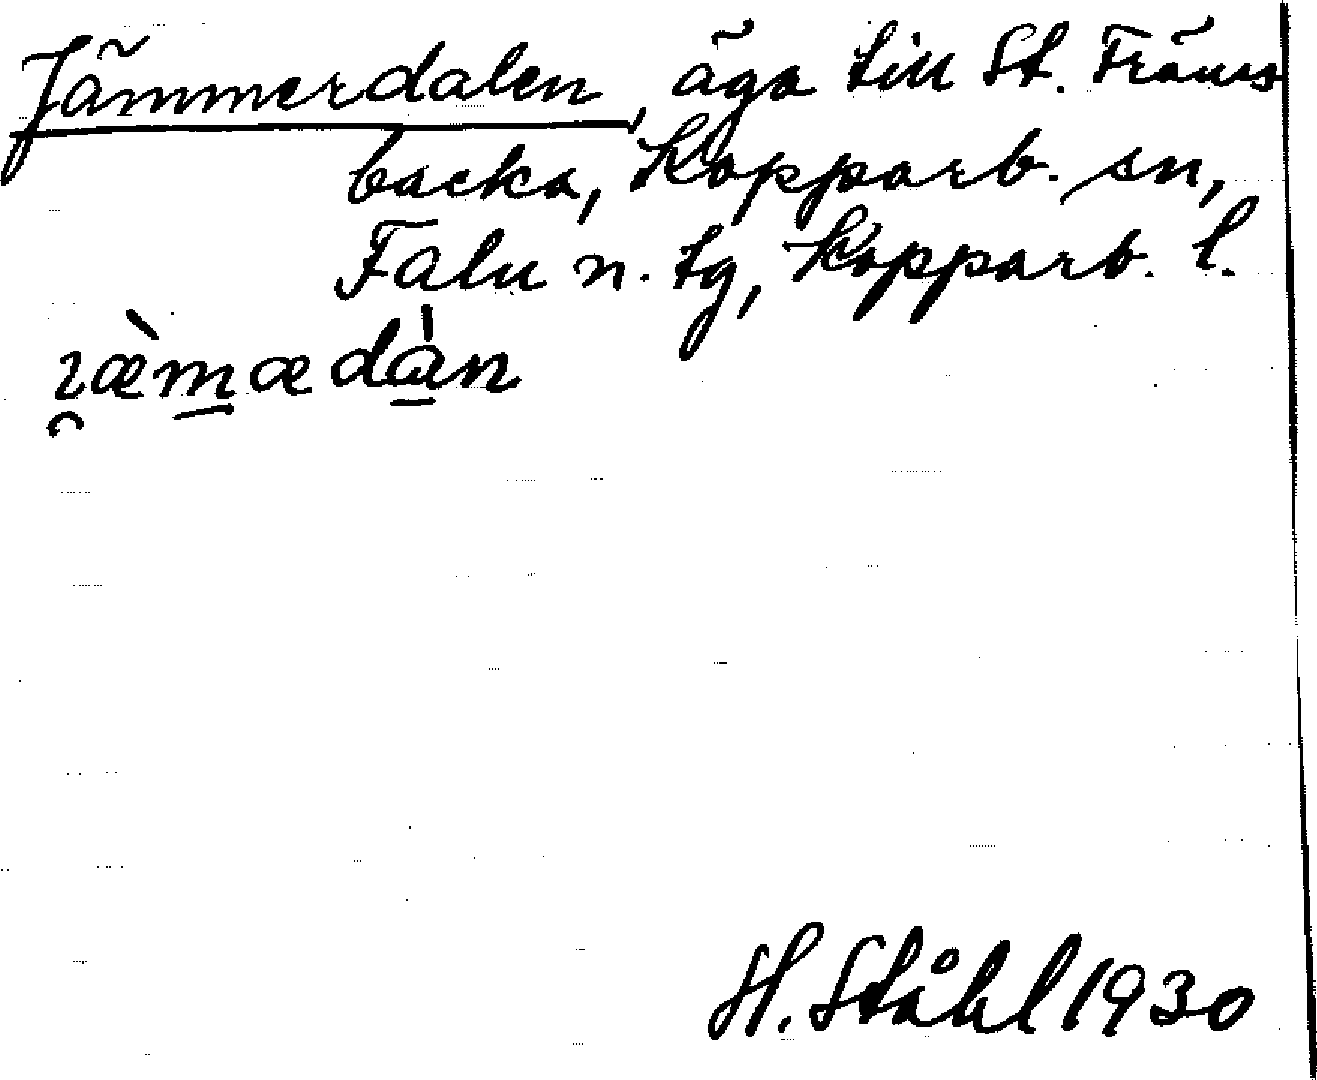 Jämmerdalen, äga till St. Fräns
backa, Kopparb. sn,
Falu n. tg, Kopparb. l.
ı̯æ̀m̠ædà̠n
H. Ståhl 1930